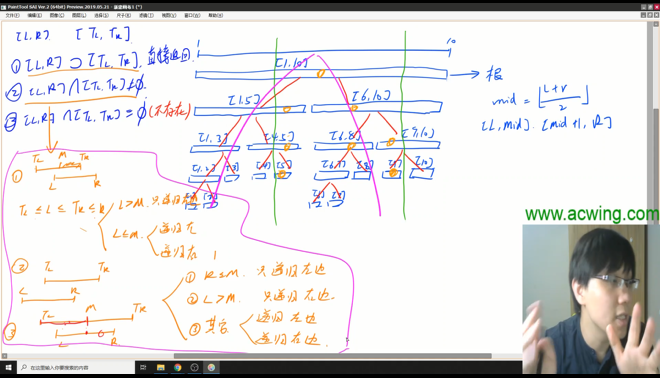 PaintTool SAI Ver.2 Preview.2019.05.21
[L,R] [TL,TR]
① [L,R] ⊃ [TL,TR] 直接返回
② [L,R] ∩ [TL,TR] ≠ ∅.
③ [L,R] ∩ [TL,TR] = ∅ (不存在)
1 10
[1,10]
[1,5] [6,10]
[1,3] [4,5] [6,8] [9,10]
[1,2] [3] [4] [5] [6,7] [8] [9] [10]
→ 根
mid = ⌊(L+r)/2⌋
[L,mid]. [mid+1, R]
① TL M TR
L R
TL ≤ L ≤ TR ≤ R
L>M. 只递归右边
L≤M. 递归左
递归右
② TL TR
L R
① R≤M. 只递归左边
② L>M. 只递归右边.
③ 其它 递归左边
递归右边.
③ TL M TR
L R
www.acwing.com
在这里输入你要搜索的内容